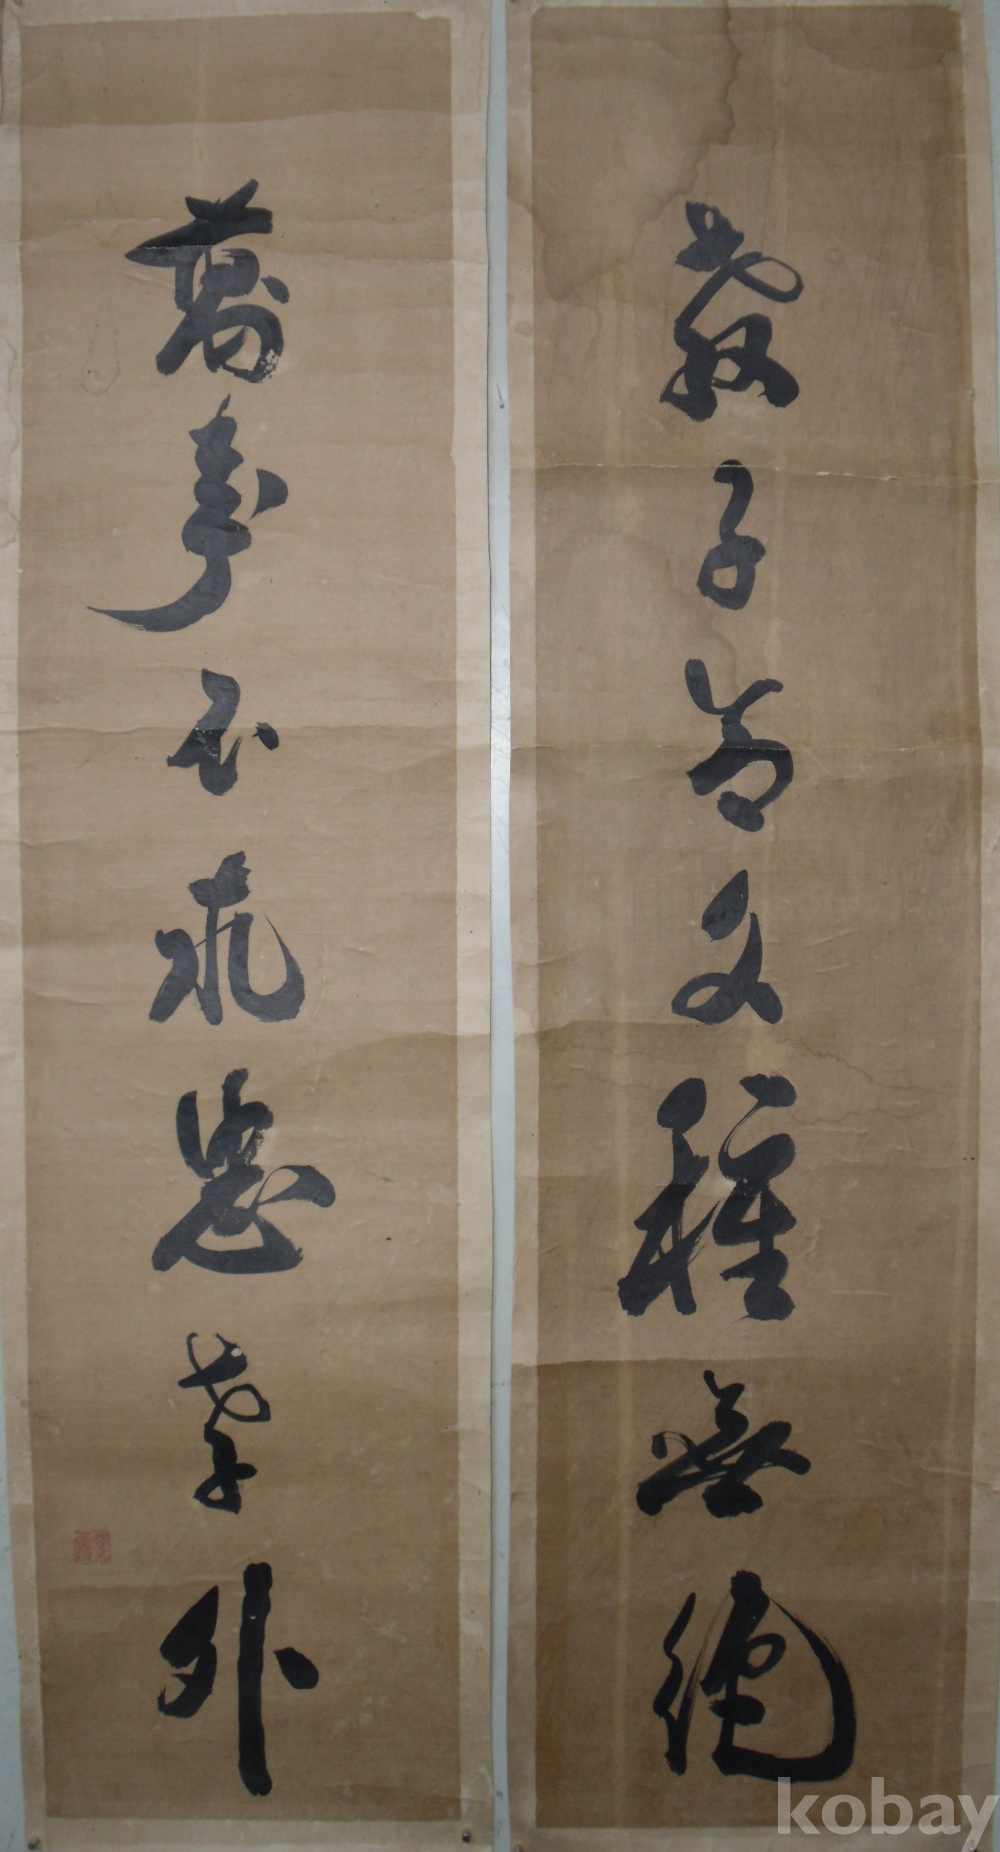 教子尚文種無絶
萬事不求忠孝外
kobay